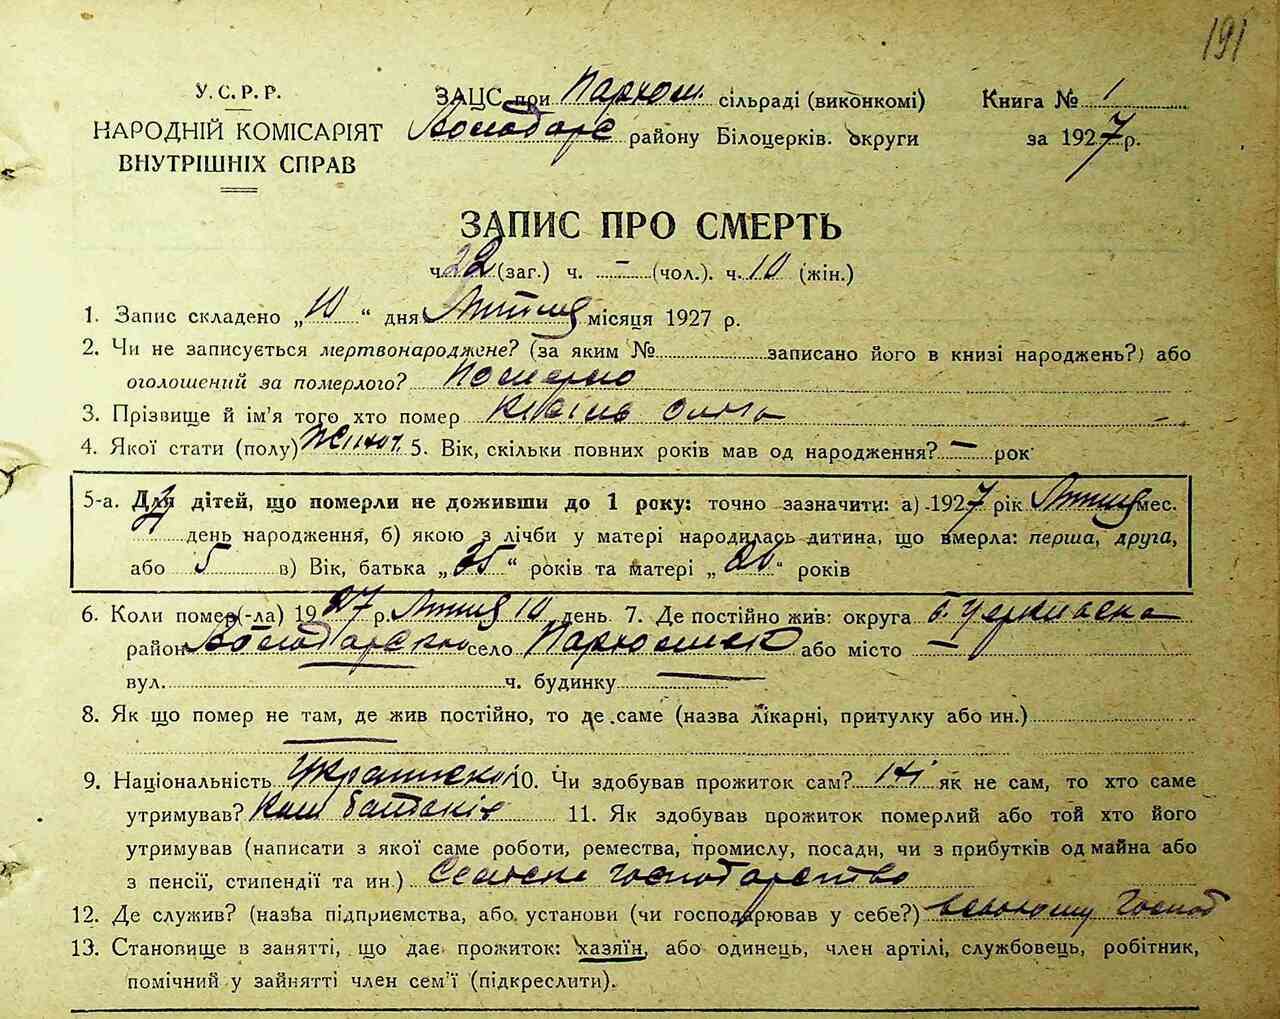 191
У.С.Р.Р.
НАРОДНІЙ КОМІСАРІЯТ
ВНУТРІШНІХ СПРАВ
ЗАЦС при Пархом. сільраді (виконкомі)
Володарс району Білоцерків. округи
Книга № 1
за 1927 р.
ЗАПИС ПРО СМЕРТЬ
ч. 22 (заг.) ч. – (чол.). ч. 10 (жін.)
1. Запис складено „10“ дня Лютня місяця 1927 р.
2. Чи не записується мертвонароджене? (за яким № записано його в книзі народжень?) або
оголошений за померлого? Померло
3. Прізвище й ім'я того хто помер Ольга
4. Якої стати (полу) Жіноч. 5. Вік, скільки повних років мав од народження? – рок
5-а. Для дітей, що померли не доживши до 1 року: точно зазначити: а) 1927 рік Лютня мес.
день народження, б) якою з лічби у матері народилась дитина, що вмерла: перша, друга,
або 5 в) Вік, батька „35“ років та матері „ “ років
6. Коли помер(-ла) 1927 р. Лютня 10 день 7. Де постійно жив: округа Б. Церківська
район Володарський село Пархомівка або місто –
вул. ч. будинку
8. Як що помер не там, де жив постійно, то де саме (назва лікарні, притулку або ин.)
9. Національність Української 10. Чи здобував прожиток сам? ні як не сам, то хто саме
утримував? Кош батьків 11. Як здобував прожиток померлий або той хто його
утримував (написати з якої саме роботи, ремества, промислу, посади, чи з прибутків од майна або
з пенсії, стипендії та ин.) Сельське господарство
12. Де служив? (назва підприємства, або установи (чи господарював у себе?) господ
13. Становище в занятті, що дає прожиток: хазяїн, або одинець, член артілі, службовець, робітник,
помічний у зайнятті член сем'ї (підкреслити).